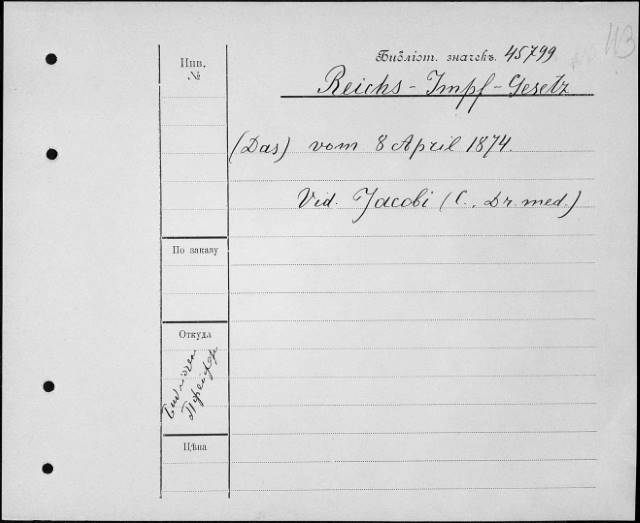 113
Библіот. значекъ. 45799
Инв.
№
Reichs-Impf-Gesetz
(Das) vom 8 April 1874.
Vid. Jacobi (C., Dr. med.)
По заказу
Откуда
Цѣна